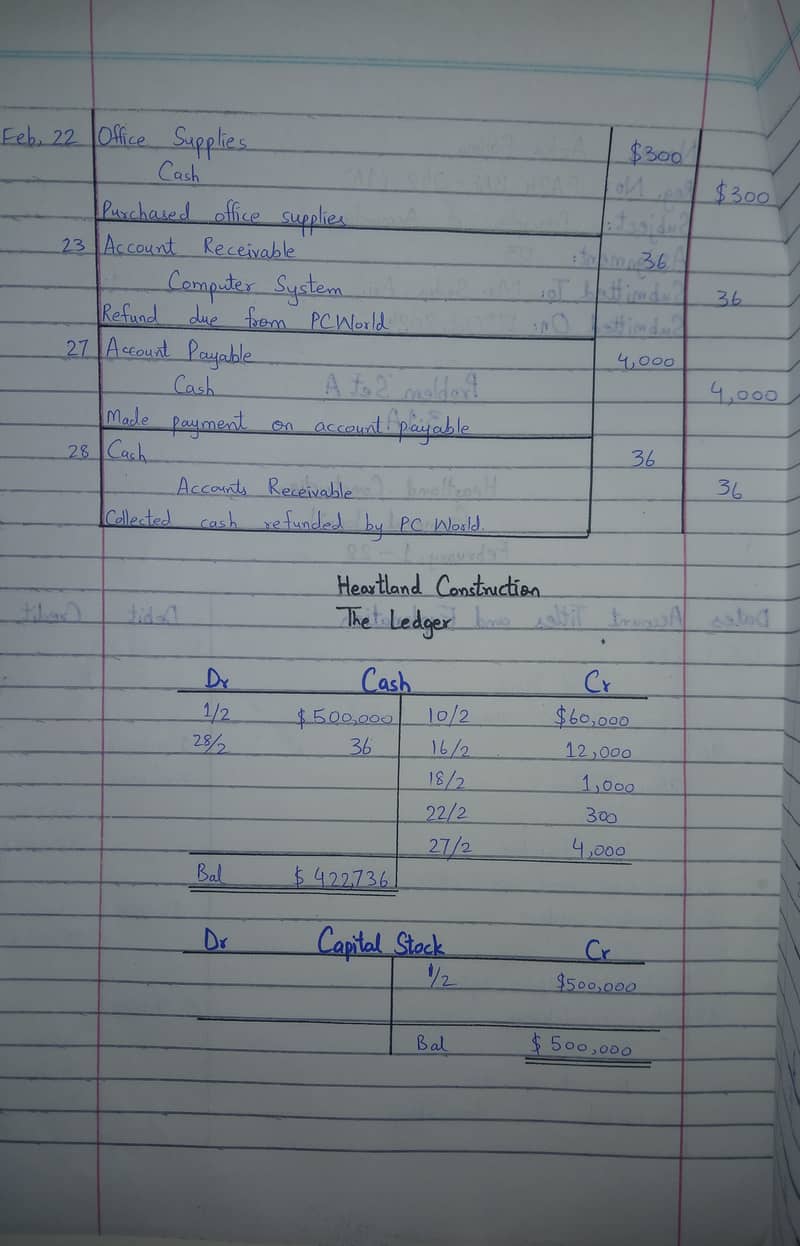 Feb, 22 Office Supplies $300
Cash $300
Purchased office supplies
23 Account Receivable 36
Computer System 36
Refund due from PC World
27 Account Payable 4,000
Cash 4,000
Made payment on account payable
28 Cash 36
Accounts Receivable 36
Collected cash refunded by PC World.
Heartland Construction
The Ledger
Dr Cash Cr
1/2 $500,000 10/2 $60,000
28/2 36 16/2 12,000
18/2 1,000
22/2 300
27/2 4,000
Bal $422,736
Dr Capital Stock Cr
1/2 $500,000
Bal $500,000